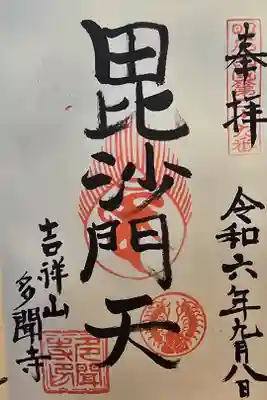 奉拝
令和六年九月八日
毘沙門天
吉祥山
多聞寺